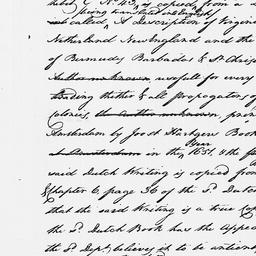 G No. 43, is copied from a
so called, A Description of Virgin
Netherland New England and the
of Bermudes Barbados & St Chris
Author unknown, usefull for every
trading thither & all propagators of
Colonies, the author unknown, prin
Amsterdam by Joost Hartgers Book
at Amsterdam in the Year 1651, & the
said Dutch Writing is copied from
Chapter 6, page 26 of the sd. Dutch
that the said Writing is a true Co
the sd. Dutch Book has the Appea
the sd. Dept. believes it to be antient